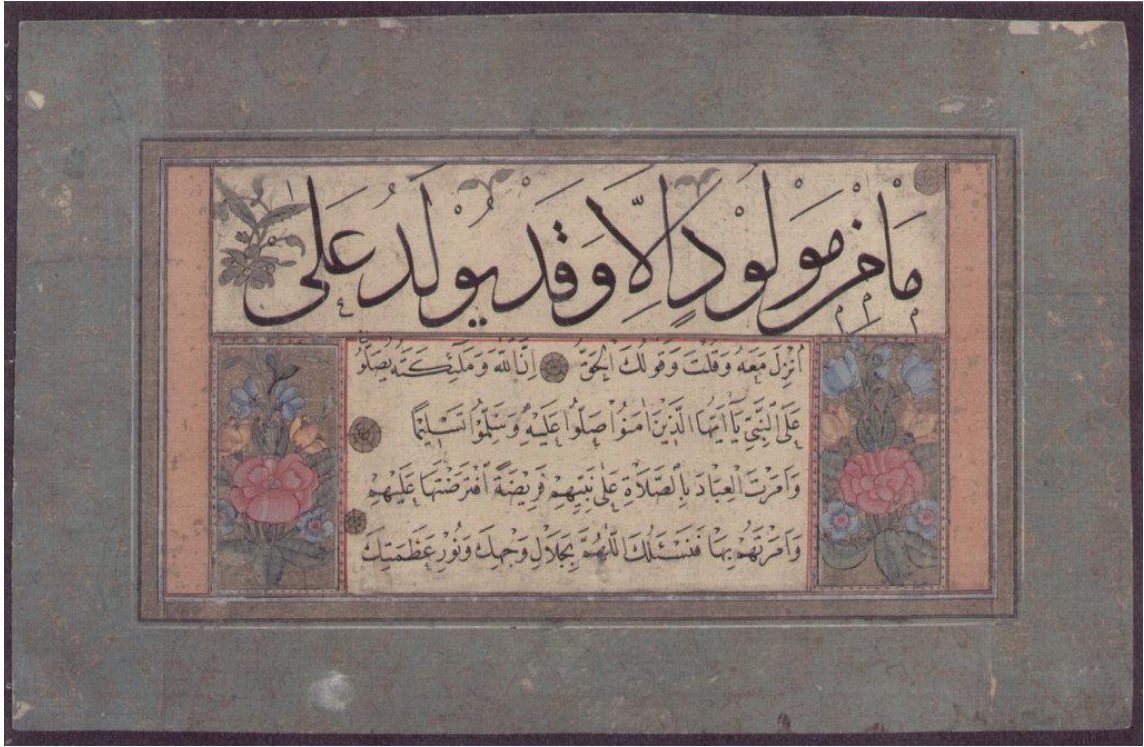 مَا مِنْ مَوْلُوْدٍ اِلَّا وَقَدْ يُوْلَدُ عَلَى
اُنْزِلَ مَعَهُ وَقُلْتَ وَقَوْلُكَ الْحَقُّ اِنَّ اللّٰهَ وَمَلٰئِكَتَهُ يُصَلُّوْ
عَلَى النَّبِيِّ يَآ اَيُّهَا الَّذِيْنَ اٰمَنُوْا صَلُّوْا عَلَيْهِ وَسَلِّمُوْا تَسْلِيْمًا
وَاَمَرْتَ الْعِبَادَ بِالصَّلَاةِ عَلٰى نَبِيِّهِمْ فَرِيْضَةً اَفْتَرَضْتَهَا عَلَيْهِمْ
وَاَمَرْتَهُمْ بِهَا فَنَسْئَلُكَ اللّٰهُمَّ بِجَلَالِ وَجْهِكَ وَنُوْرِ عَظَمَتِكَ